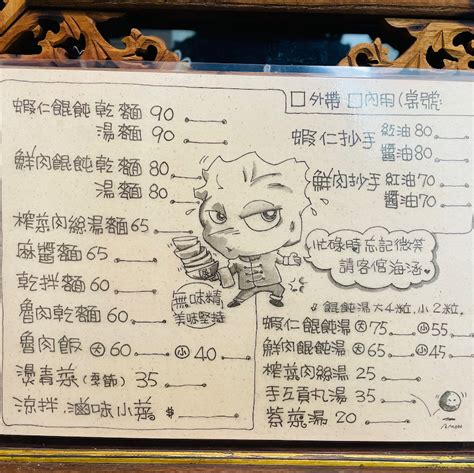 □外帶 □內用(桌號:
蝦仁餛飩乾麵 90
湯麵 90
鮮肉餛飩乾麵 80
湯麵 80
榨菜肉絲湯麵 65
麻醬麵 65
乾拌麵 60
魯肉乾麵 60
魯肉飯 大60 小40
燙青菜(季節) 35
涼拌.滷味小菜 $
蝦仁抄手 紅油 80
醬油 80
鮮肉抄手 紅油 70
醬油 70
忙碌時忘記微笑
請客倌海涵
無味精
美味堅持
餛飩湯大4粒,小2粒.
蝦仁餛飩湯 大75 小55
鮮肉餛飩湯 大65 小45
榨菜肉絲湯 25
手工貢丸湯 35
紫菜湯 20